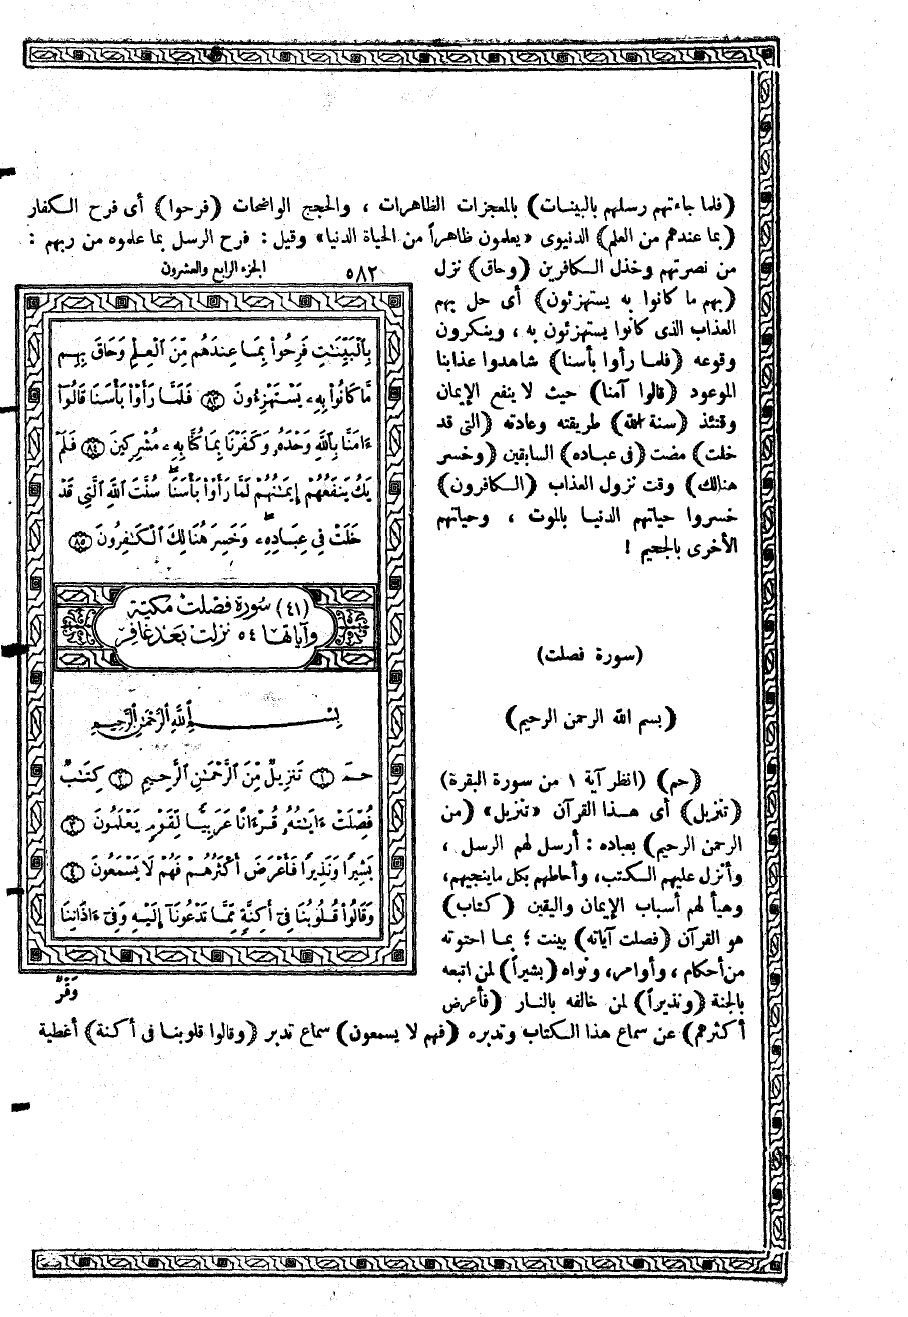 (فلما جاءتهم رسلهم بالبينات) بالمعجزات الظاهرات ، والحجج الواضحات (فرحوا) أى فرح الكفار
(بما عندهم من العلم) الدنيوى «يعلمون ظاهراً من الحياة الدنيا» وقيل : فرح الرسل بما علموه من ربهم :
من نصرتهم وخذل الكافرين (وحاق) نزل
(بهم ما كانوا به يستهزئون) أى حل بهم
العذاب الذى كانوا يستهزئون به ، وينكرون
وقوعه (فلما رأوا بأسنا) شاهدوا عذابنا
الموعود (قالوا آمنا) حيث لا ينفع الإيمان
وقتئذ (سنة الله) طريقته وعادته (التى قد
خلت) مضت (فى عباده) السابقين (وخسر
هنالك) وقت نزول العذاب (الكافرون)
خسروا حياتهم الدنيا بالموت ، وحياتهم
الأخرى بالجحيم !
(سورة فصلت)
(بسم الله الرحمن الرحيم)
(حم) (انظر آية ١ من سورة البقرة)
(تنزيل) أى هذا القرآن «تنزيل» (من
الرحمن الرحيم) بعباده : أرسل لهم الرسل ،
وأنزل عليهم الكتب، وأحاطهم بكل ماينجيهم،
وهيأ لهم أسباب الإيمان واليقين (كتاب)
هو القرآن (فصلت آياته) بينت ؛ بما احتوته
من أحكام ، وأوامر، ونواه (بشيراً) لمن اتبعه
بالجنة (ونذيراً) لمن خالفه بالنار (فأعرض
أكثرهم) عن سماع هذا الكتاب وتدبره (فهم لا يسمعون) سماع تدبر (وقالوا قلوبنا فى أكنة) أغطية
٥٨٢ الجزء الرابع والعشرون
بِٱلْبَيِّنَٰتِ فَرِحُوا۟ بِمَا عِندَهُم مِّنَ ٱلْعِلْمِ وَحَاقَ بِهِم
مَّا كَانُوا۟ بِهِۦ يَسْتَهْزِءُونَ ٨٣ فَلَمَّا رَأَوْا۟ بَأْسَنَا قَالُوٓا۟
ءَامَنَّا بِٱللَّهِ وَحْدَهُۥ وَكَفَرْنَا بِمَا كُنَّا بِهِۦ مُشْرِكِينَ ٨٤ فَلَمْ
يَكُ يَنفَعُهُمْ إِيمَٰنُهُمْ لَمَّا رَأَوْا۟ بَأْسَنَا ۖ سُنَّتَ ٱللَّهِ ٱلَّتِى قَدْ
خَلَتْ فِى عِبَادِهِۦ ۖ وَخَسِرَ هُنَالِكَ ٱلْكَٰفِرُونَ ٨٥
(٤١) سورة فصلت مكية
وآياتها ٥٤ نزلت بعد غافر
بِسْمِ ٱللَّهِ ٱلرَّحْمَٰنِ ٱلرَّحِيمِ
حمٓ ١ تَنزِيلٌ مِّنَ ٱلرَّحْمَٰنِ ٱلرَّحِيمِ ٢ كِتَٰبٌ
فُصِّلَتْ ءَايَٰتُهُۥ قُرْءَانًا عَرَبِيًّا لِّقَوْمٍ يَعْلَمُونَ ٣
بَشِيرًا وَنَذِيرًا فَأَعْرَضَ أَكْثَرُهُمْ فَهُمْ لَا يَسْمَعُونَ ٤
وَقَالُوا۟ قُلُوبُنَا فِىٓ أَكِنَّةٍ مِّمَّا تَدْعُونَآ إِلَيْهِ وَفِىٓ ءَاذَانِنَا
وَقْرٌ